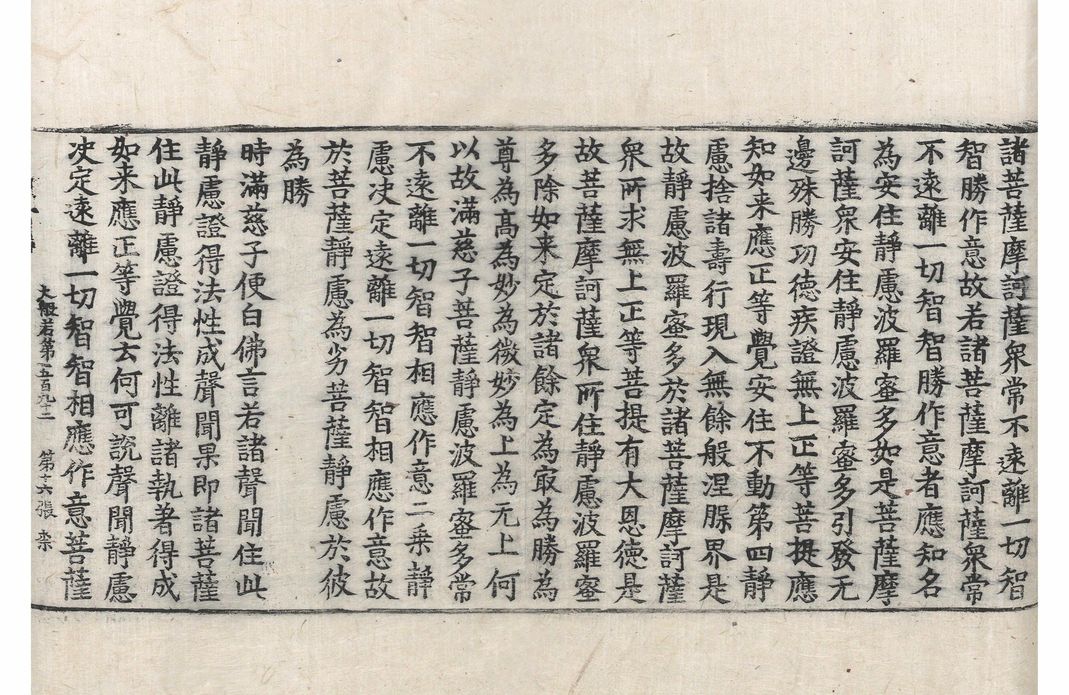 諸菩薩摩訶薩衆常不遠離一切智
智勝作意故若諸菩薩摩訶薩衆常
不遠離一切智智勝作意者應知名
為安住靜慮波羅蜜多如是菩薩摩
訶薩衆安住靜慮波羅蜜多引發无
邊殊勝功德疾證無上正等菩提應
知如来應正等覺安住不動第四靜
慮捨諸壽行現入無餘般涅䏶界是
故靜慮波羅蜜多於諸菩薩摩訶薩
衆所求無上正等菩提有大恩德是
故菩薩摩訶薩衆所住靜慮波羅蜜
多除如来定於諸餘定為㝡為勝為
尊為髙為妙為微妙為上為无上何
以故滿慈子菩薩靜慮波羅蜜多常
不遠離一切智智相應作意二乗靜
慮决定遠離一切智智相應作意故
於菩薩靜慮為劣菩薩靜慮於彼
為勝
時滿慈子便白佛言若諸聲聞住此
靜慮證得法性成聲聞果即諸菩薩
住此靜慮證得法性離諸執著得成
如来應正等覺云何可說聲聞靜慮
决定遠離一切智智相應作意菩薩
大般若第五百九十二 第十六張 柰